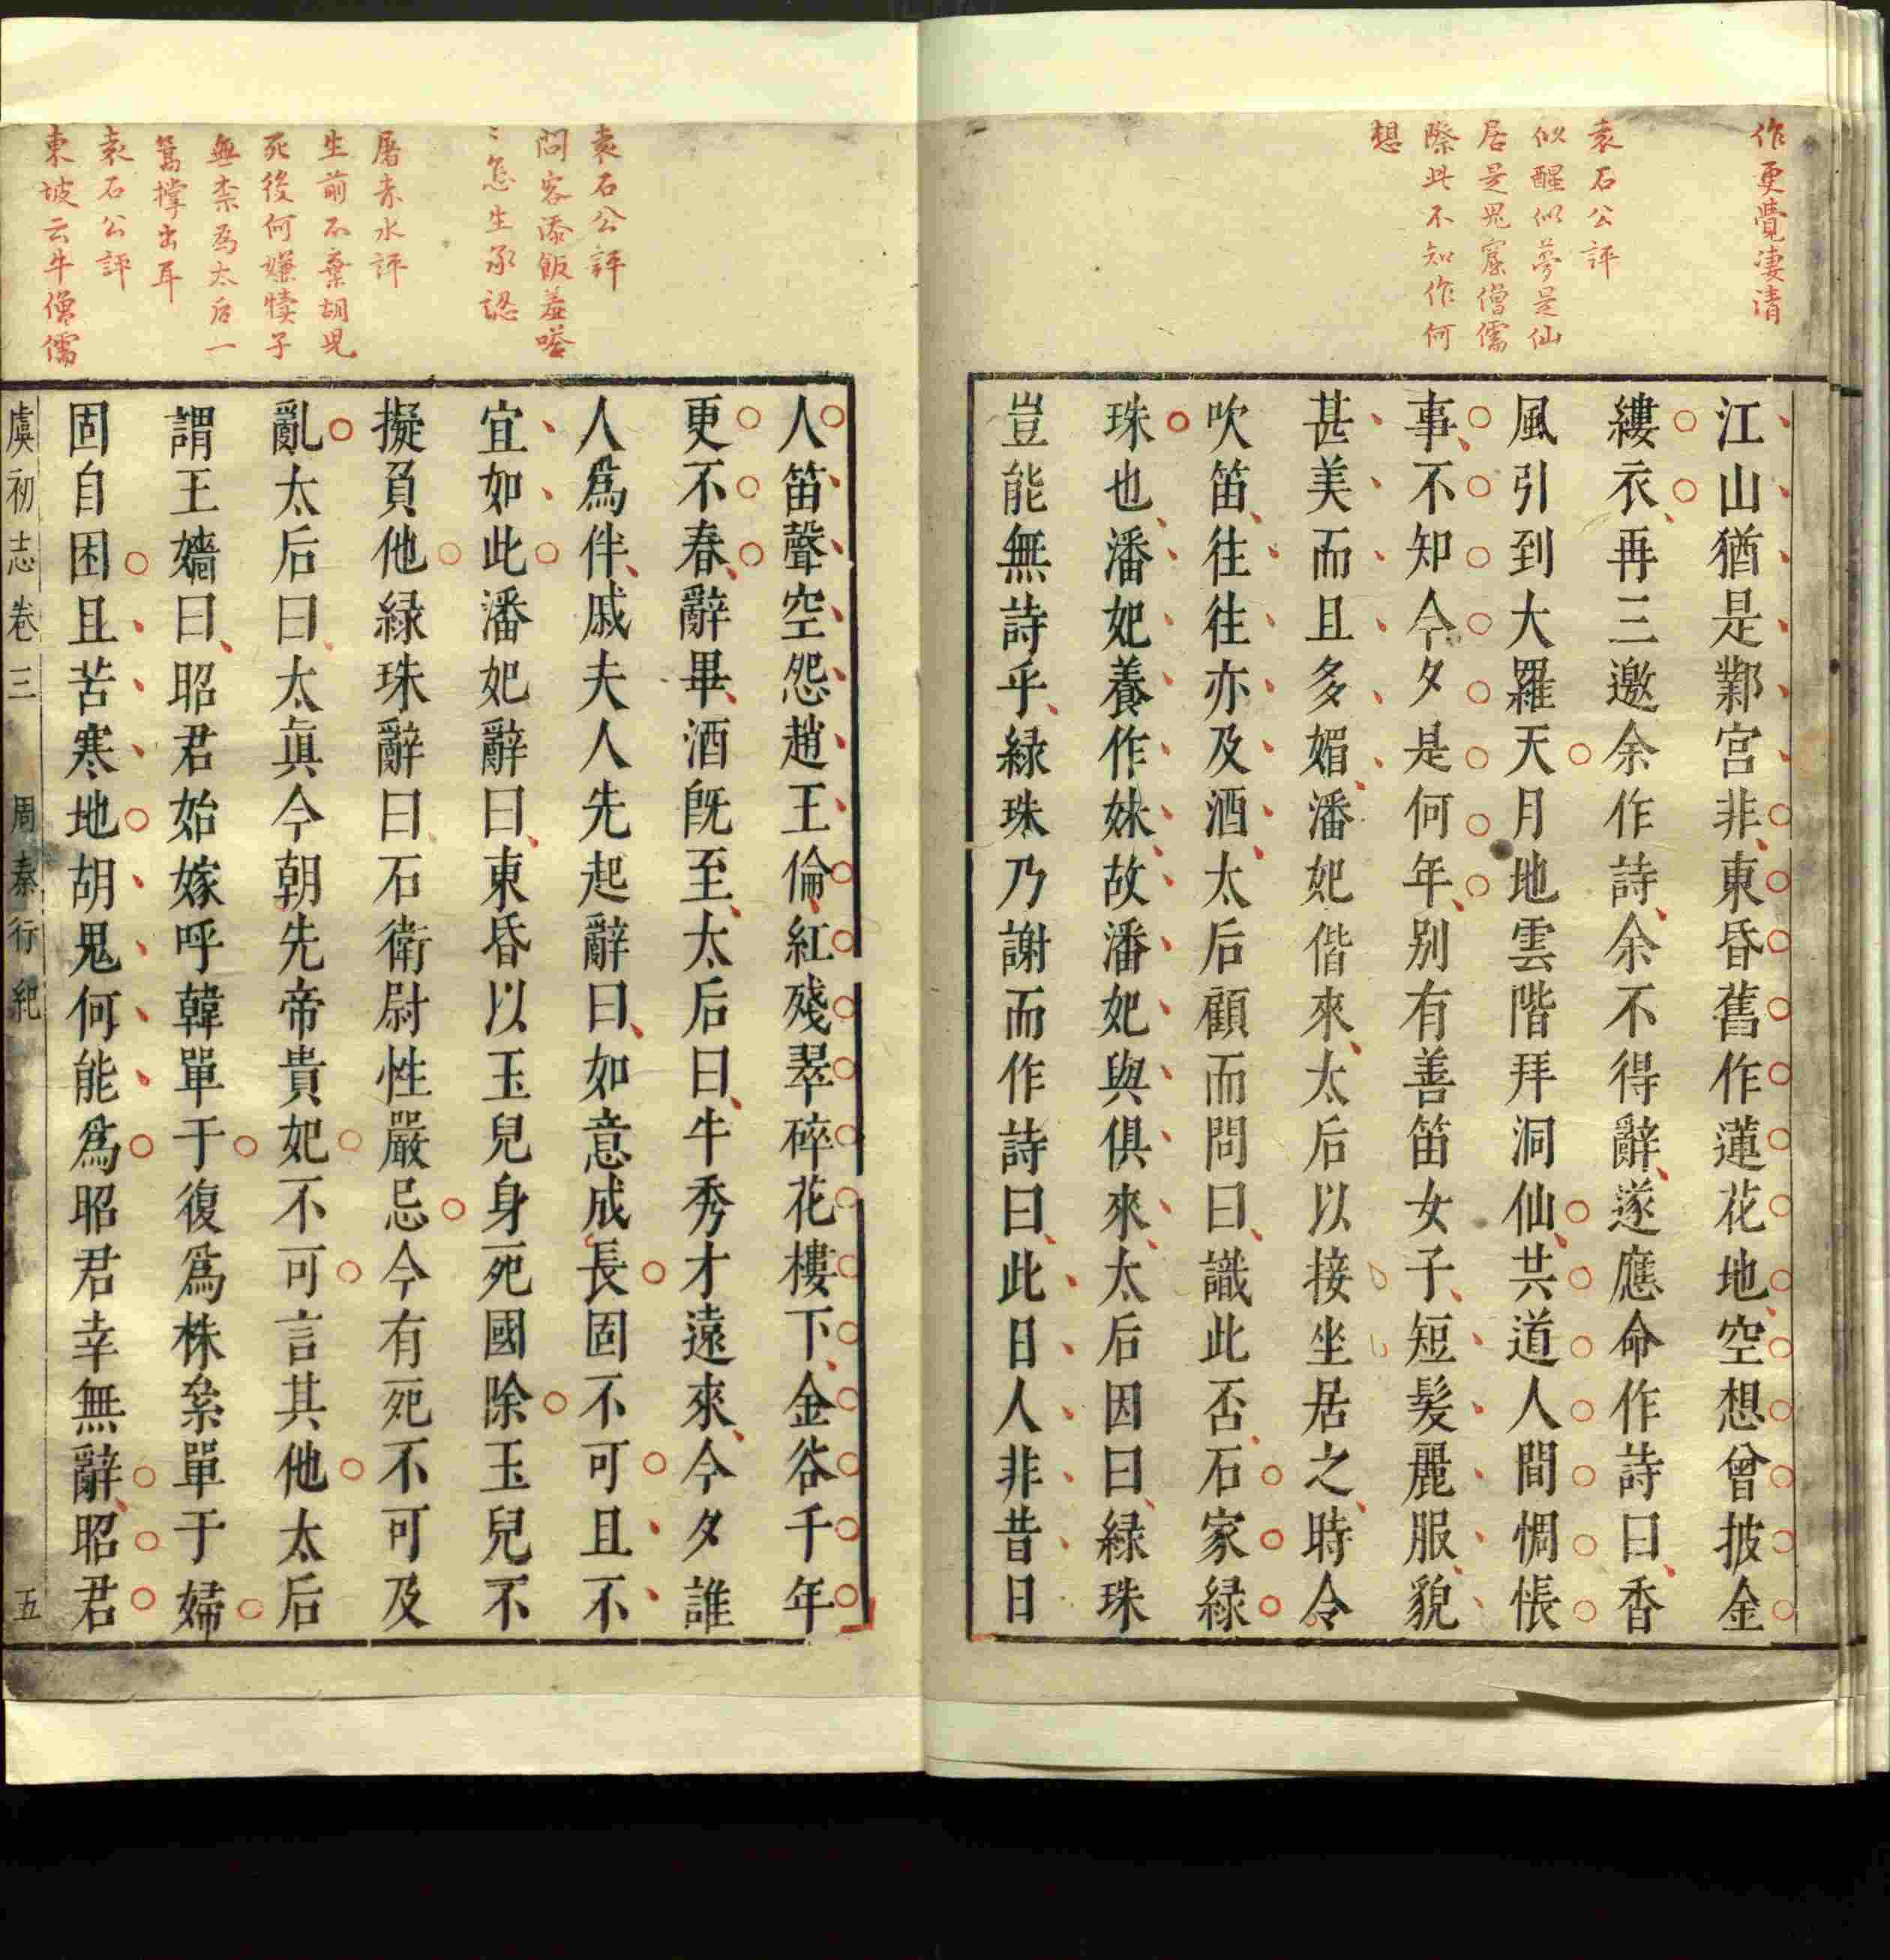 作更覺凄清
袁石公評
似醒似夢是仙
居是鬼窟僧儒
際此不知作何
想
江山猶是鄴宮非東昏舊作蓮花地空想曾披金
縷衣再三邀余作詩余不得辭遂應命作詩曰香
風引到大羅天月地雲階拜洞仙共道人間惆悵
事不知今夕是何年别有善笛女子短髮麗服貌
甚美而且多媚潘妃偕來太后以接坐居之時令
吹笛往往亦及酒太后顧而問曰識此否石家緑
珠也潘妃養作妹故潘妃與俱來太后因曰緑珠
豈能無詩乎緑珠乃謝而作詩曰此日人非昔日
袁石公評
問客添飯羞嗒
〻怎生承認
屠赤水評
生前不棄胡兒
死後何嫌犢子
無柰為太后一
篙撑出耳
袁石公評
東坡云牛僧儒
人笛聲空怨趙王倫紅殘翠碎花樓下金谷千年
更不春辭畢酒旣至太后曰牛秀才遠來今夕誰
人爲伴戚夫人先起辭曰如意成長固不可且不
宜如此潘妃辭曰東昏以玉兒身死國除玉兒不
擬負他緑珠辭曰石衛尉性嚴忌今有死不可及
亂太后曰太眞今朝先帝貴妃不可言其他太后
謂王嬙曰昭君始嫁呼韓單于復爲株絫單于婦
固自困且苦寒地胡鬼何能爲昭君幸無辭昭君
虞初志卷三 周秦行紀 五